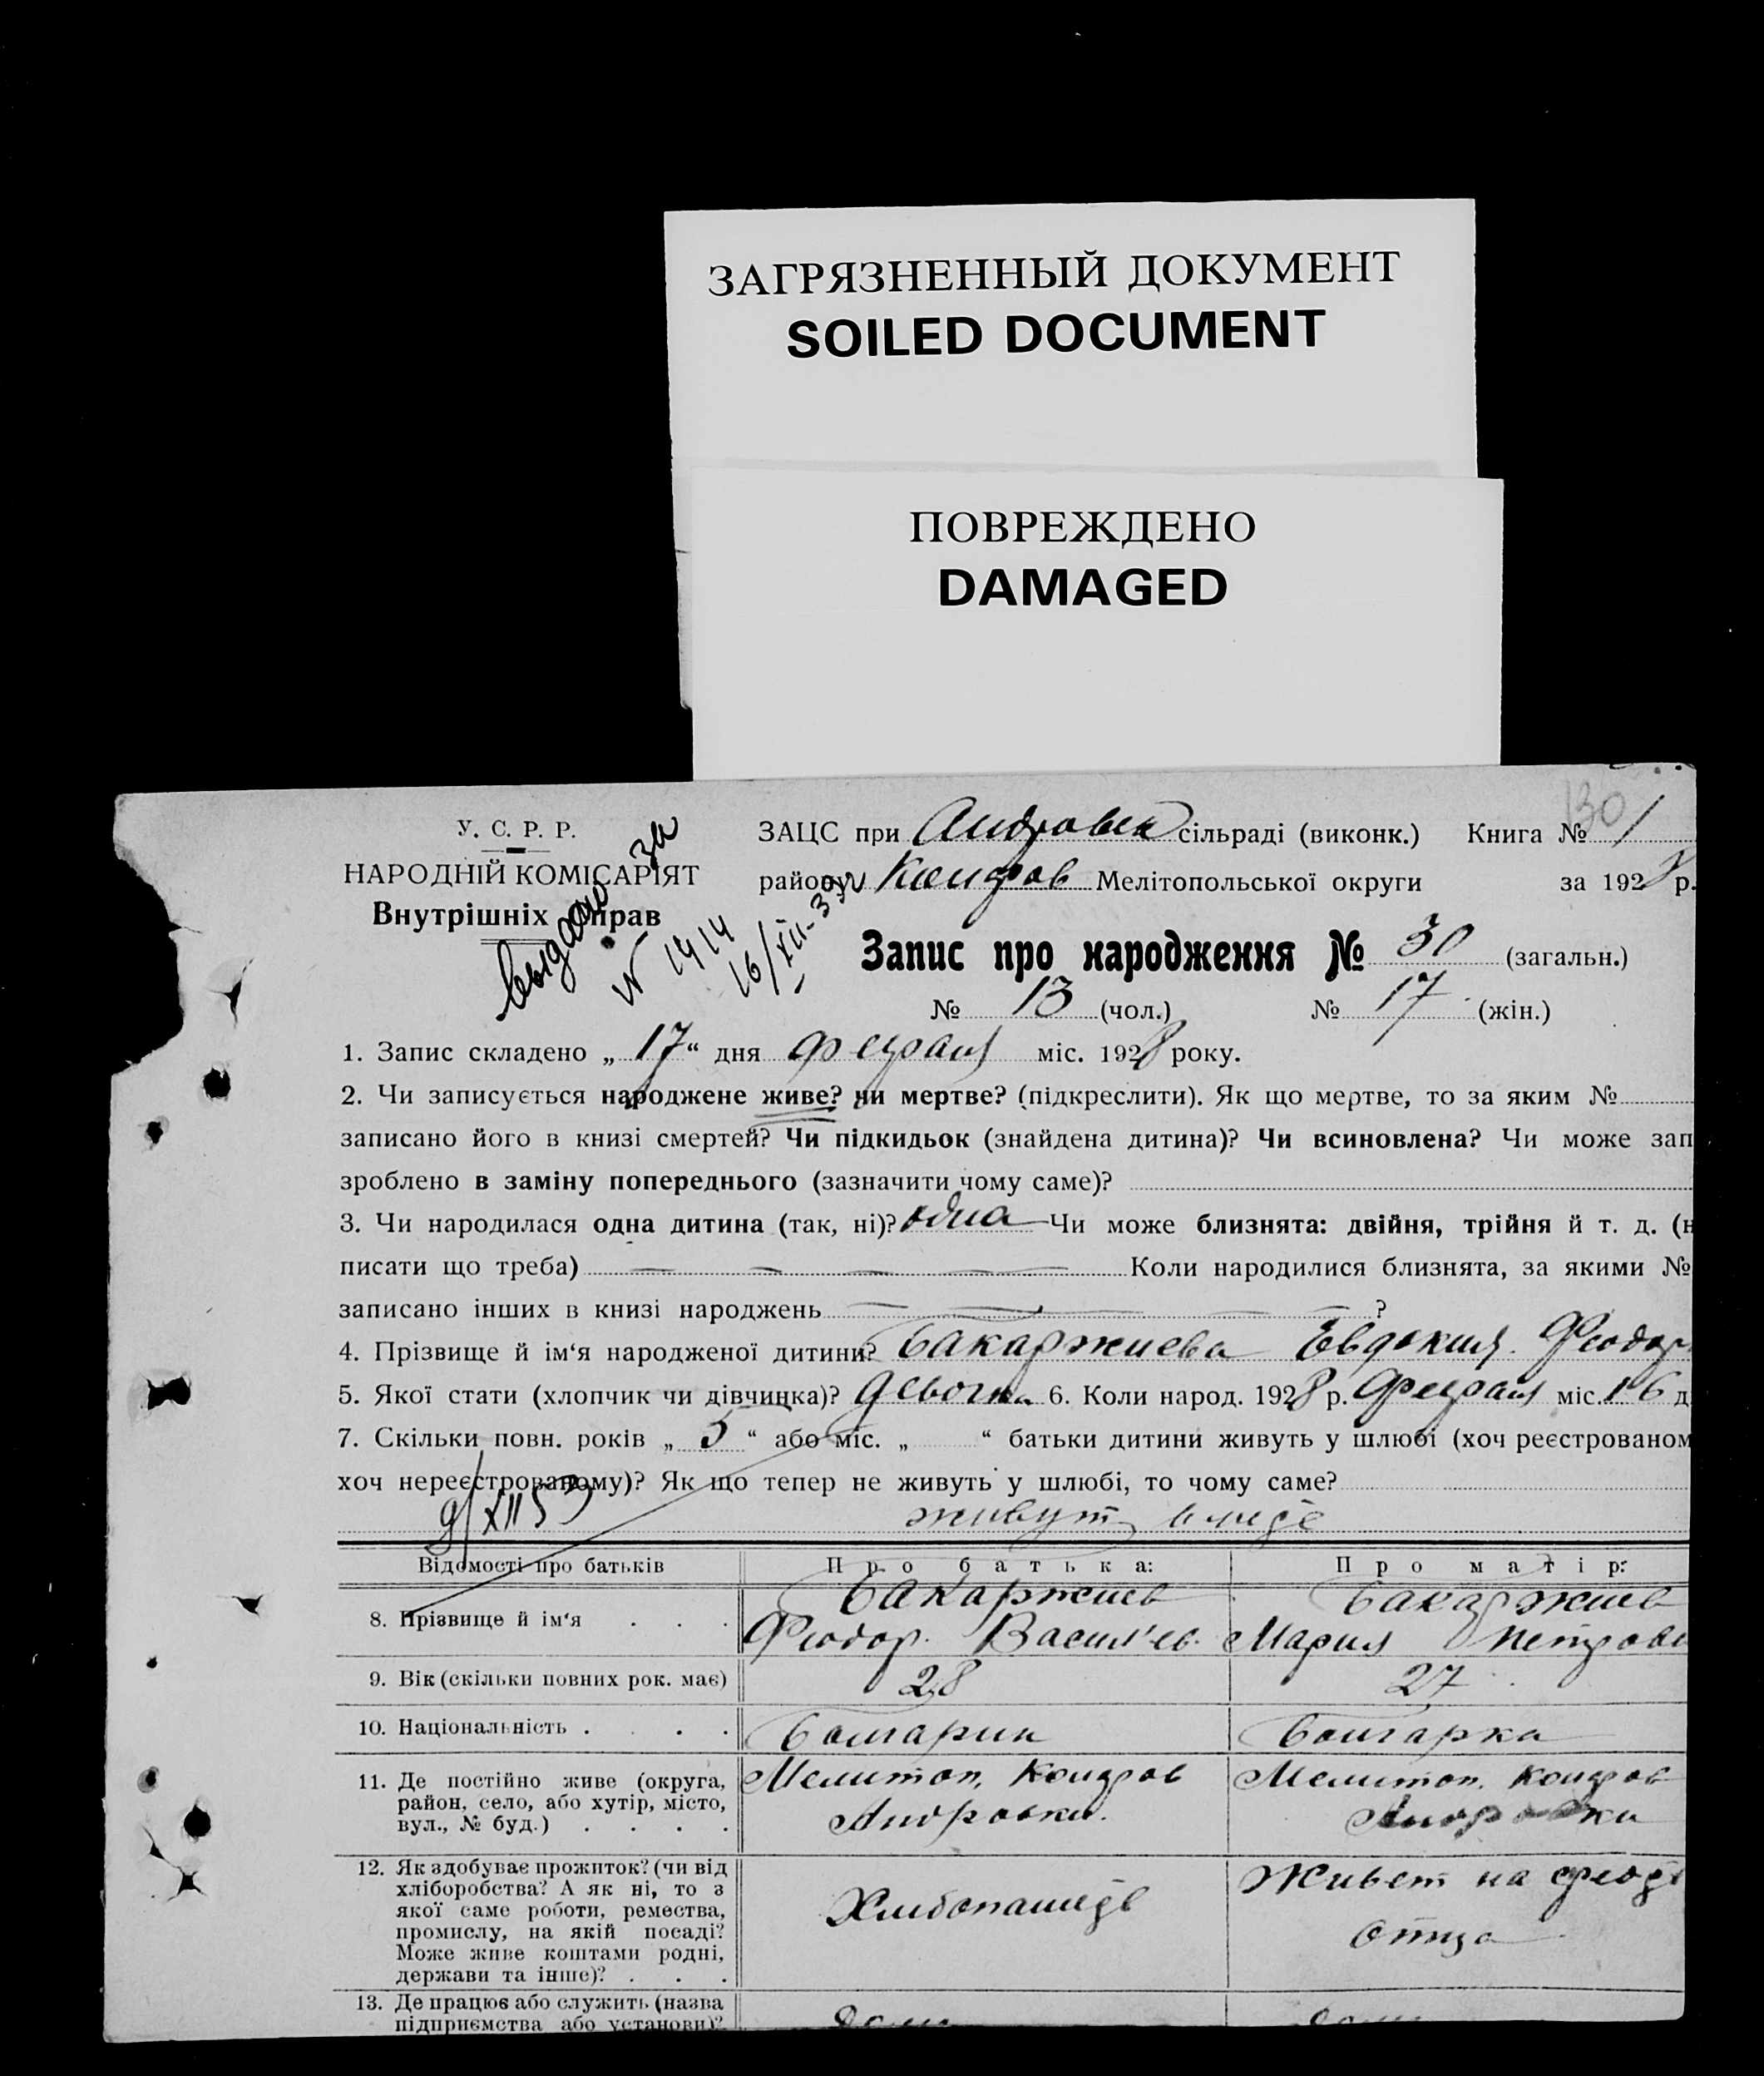 ЗАГРЯЗНЕННЫЙ ДОКУМЕНТ
SOILED DOCUMENT
ПОВРЕЖДЕНО
DAMAGED
130
У. С. Р. Р.
НАРОДНІЙ КОМІСАРІЯТ
Внутрішніх Справ
выдано за
№ 1414
16/XII-39
ЗАЦС при Андровск сільраді (виконк.) Книга № 1
району Коларов Мелітопольської округи за 1928 р.
Запис про народження № 30 (загальн.)
№ 13 (чол.) № 17 (жін.)
1. Запис складено „17“ дня февраля міс. 1928 року.
2. Чи записується народжене живе? чи мертве? (підкреслити). Як що мертве, то за яким №
записано його в книзі смертей? Чи підкидьок (знайдена дитина)? Чи всиновлена? Чи може зап
зроблено в заміну попереднього (зазначити чому саме)?
3. Чи народилася одна дитина (так, ні)? одна Чи може близнята: двійня, трійня й т. д. (н
писати що треба) — — — — Коли народилися близнята, за якими №
записано інших в книзі народжень — — — — — ?
4. Прізвище й ім‘я народженої дитини? Бакаржиева Евдокия Феодор
5. Якої стати (хлопчик чи дівчинка)? девочка 6. Коли народ. 1928 р. Февраля міс. 16 д
7. Скільки повн. років „5“ або міс. „ “ батьки дитини живуть у шлюбі (хоч реєстрованом
хоч нереєстрованому)? Як що тепер не живуть у шлюбі, то чому саме?
9/XII 53
живут
Відомості про батьків Про батька: Про матір:
8. Прізвище й ім‘я . . . Бакаржиев Феодор. Васил'ев. Бакаржиев Мария Петровн
9. Вік (скільки повних рок. має) 28 27
10. Національність . . . . Болгарин Болгарка
11. Де постійно живе (округа, Мелитоп. Коларов Мелитоп. Коларов
район, село, або хутір, місто, Андровка. Андровка
вул., № буд.) . . . .
12. Як здобуває прожиток? (чи від Живет на
хліборобства? А як ні, то з Хлибопашець
якої саме роботи, ремества, отца
промислу, на якій посаді?
Може живе коштами родні,
держави та інше)? . . .
13. Де працює або служить (назва
підприємства або установи)?